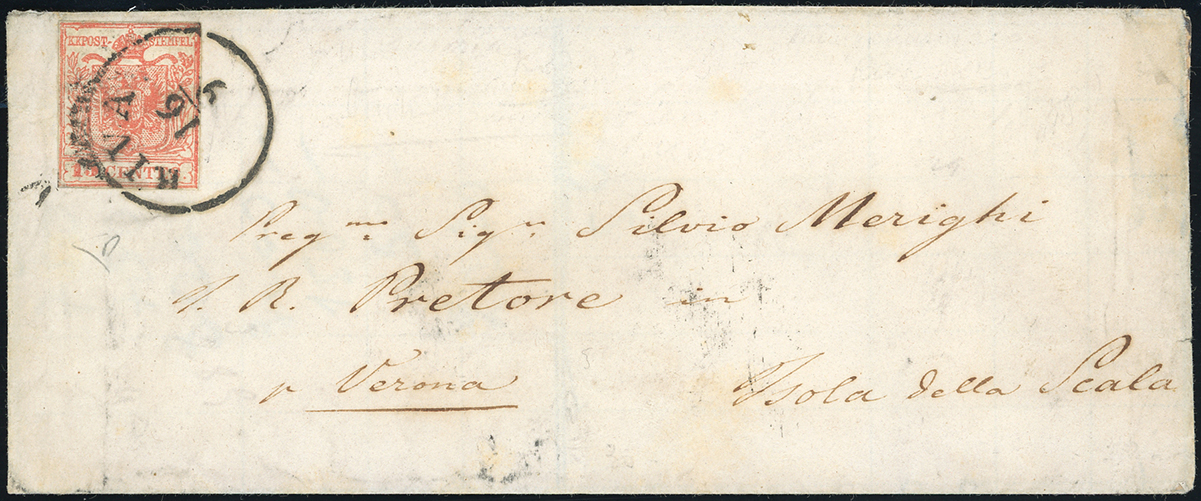 KKPOST-STEMPEL
15 CENTES
RIVA
16/9
Preg.mo Sig.r Silvio Merighi
I. R. Pretore in
p Verona Isola della Scala